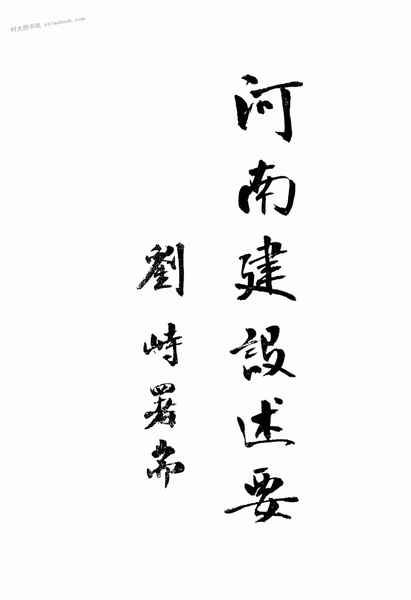 河南建設述要
劉峙署耑